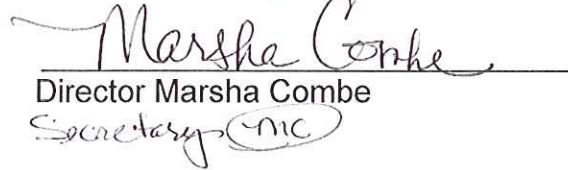 Marsha Combe
Director Marsha Combe
Secretary MC